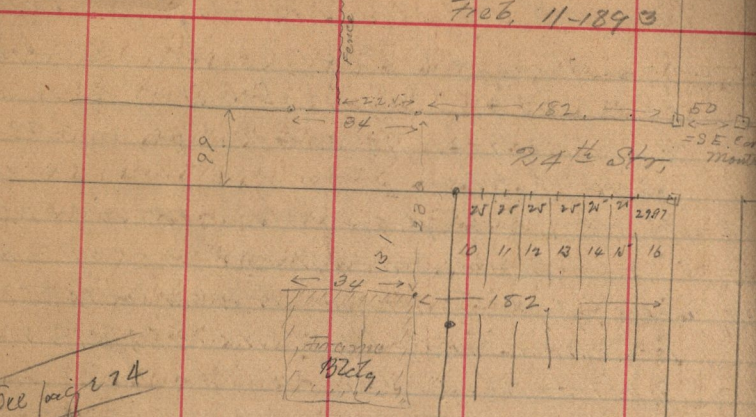 Feb, 11-1893
Fence
22.5
182
50
34
= S.E. Cor
99
24th Str,
25 25 25 25 25 29.87
10 11 12 13 14 15 16
131
34
182.
Frame
Bldg
See page 274